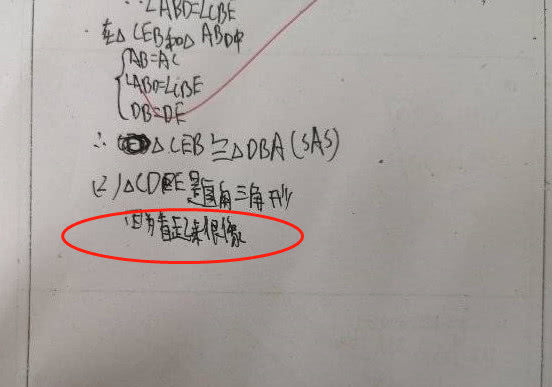 ∴∠ABD=∠CBE
在△CEB和△ABD中
AB=AC
∠ABD=∠CBE
DB=DE
∴ △CEB≌△DBA(SAS)
(2)△CDE是直角三角形
因为看起来很像